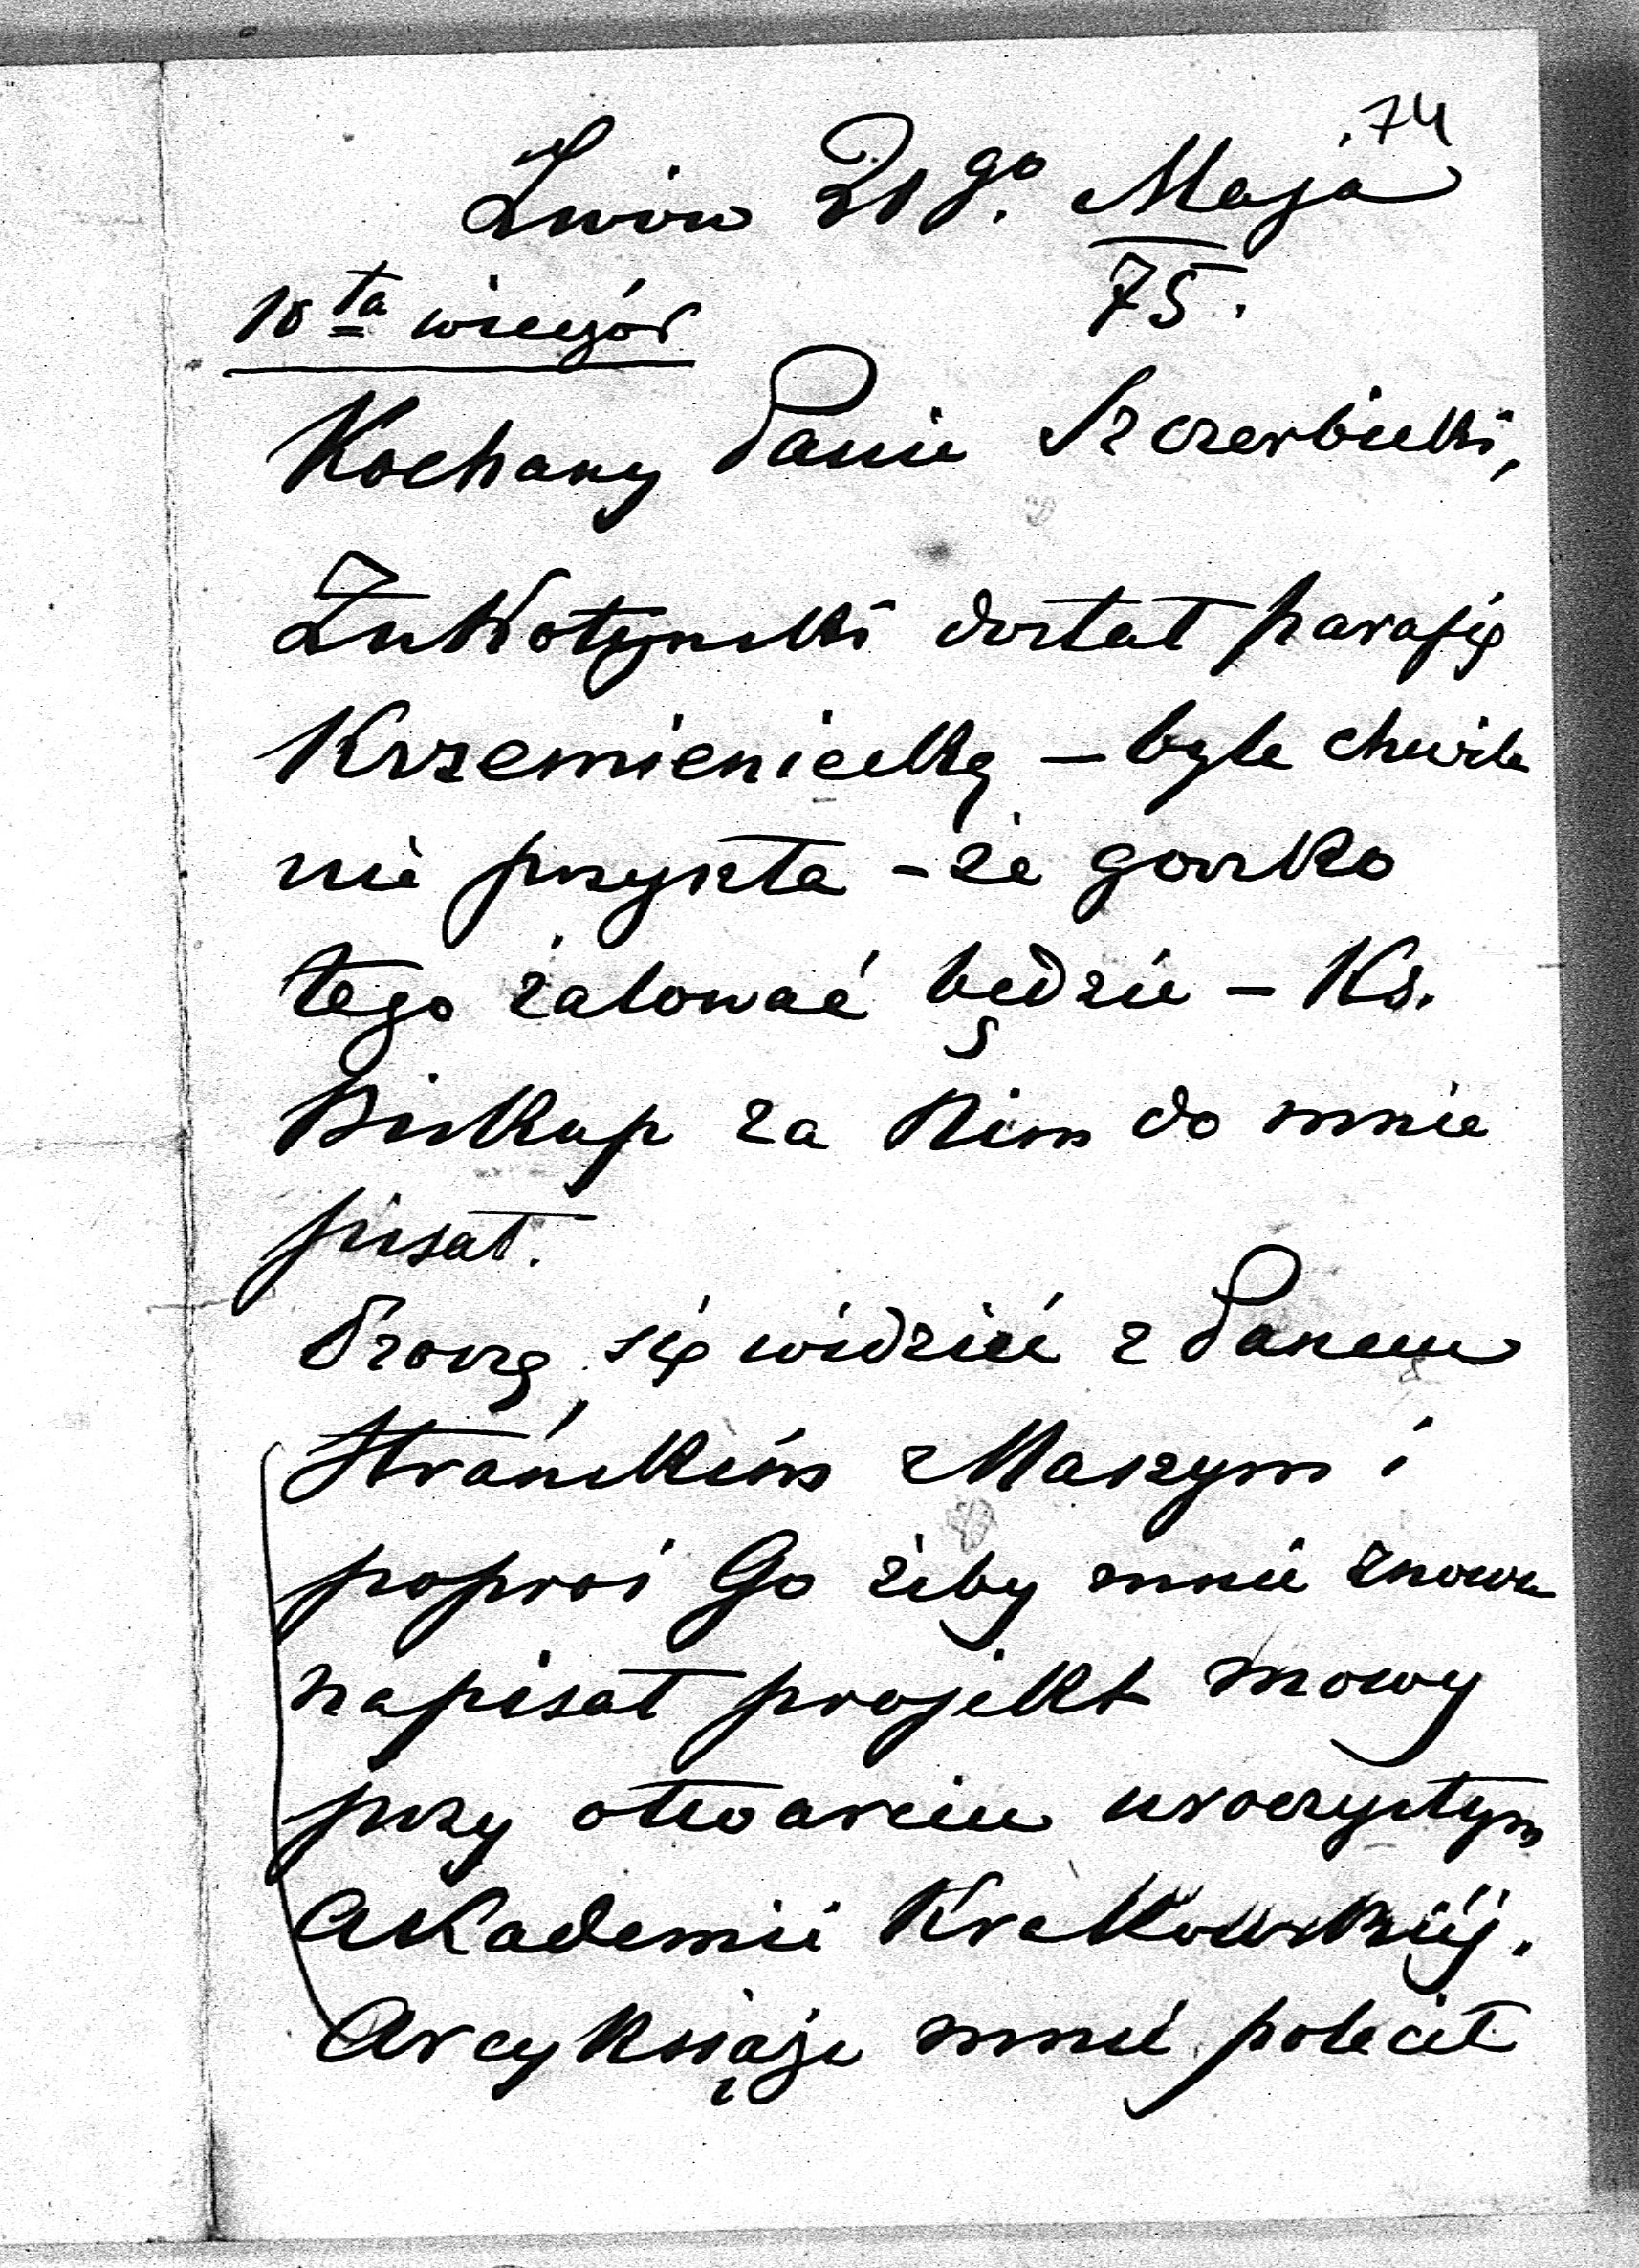 74
Lwów 21go. Maja
75.
10ta wieczór
Kochany Panie Szczerbicki,
Żukotynski dostał parafię
Krzemieniecką – byle chwila
nie przyszła – że gorzko
tego żałować będzie – Ks.
Biskup za Nim do mnie
pisał.
Proszę się widzieć z Panem
Strańskim Maszym i
poproś Go żeby mnie znowu
napisał projekt mowy
przy otwarciu uroczystym
Akademii Krakowskiéj.
Arcyksiąże mnie polecił